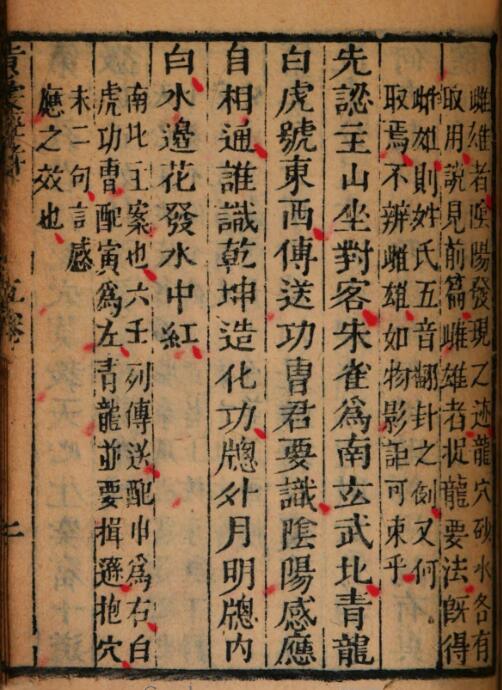 雌雄者陰陽發現之迹龍穴砂水各有
取用說見前篇雌雄者捉龍要法旣得
雌雄則姓氏五音翻卦之例又何
取焉不辨雌雄如物影詎可束乎
先認主山坐對客朱雀爲南玄武北青龍
白虎號東西傳送功曹君要識陰陽感應
自相通誰識乾坤造化功牕外月明牕內
白水邊花發水中紅
南北主案也六壬列傳送配申爲右白
虎功曹配寅爲左青龍並要揖遜抱穴
末二句言感
應之效也
二